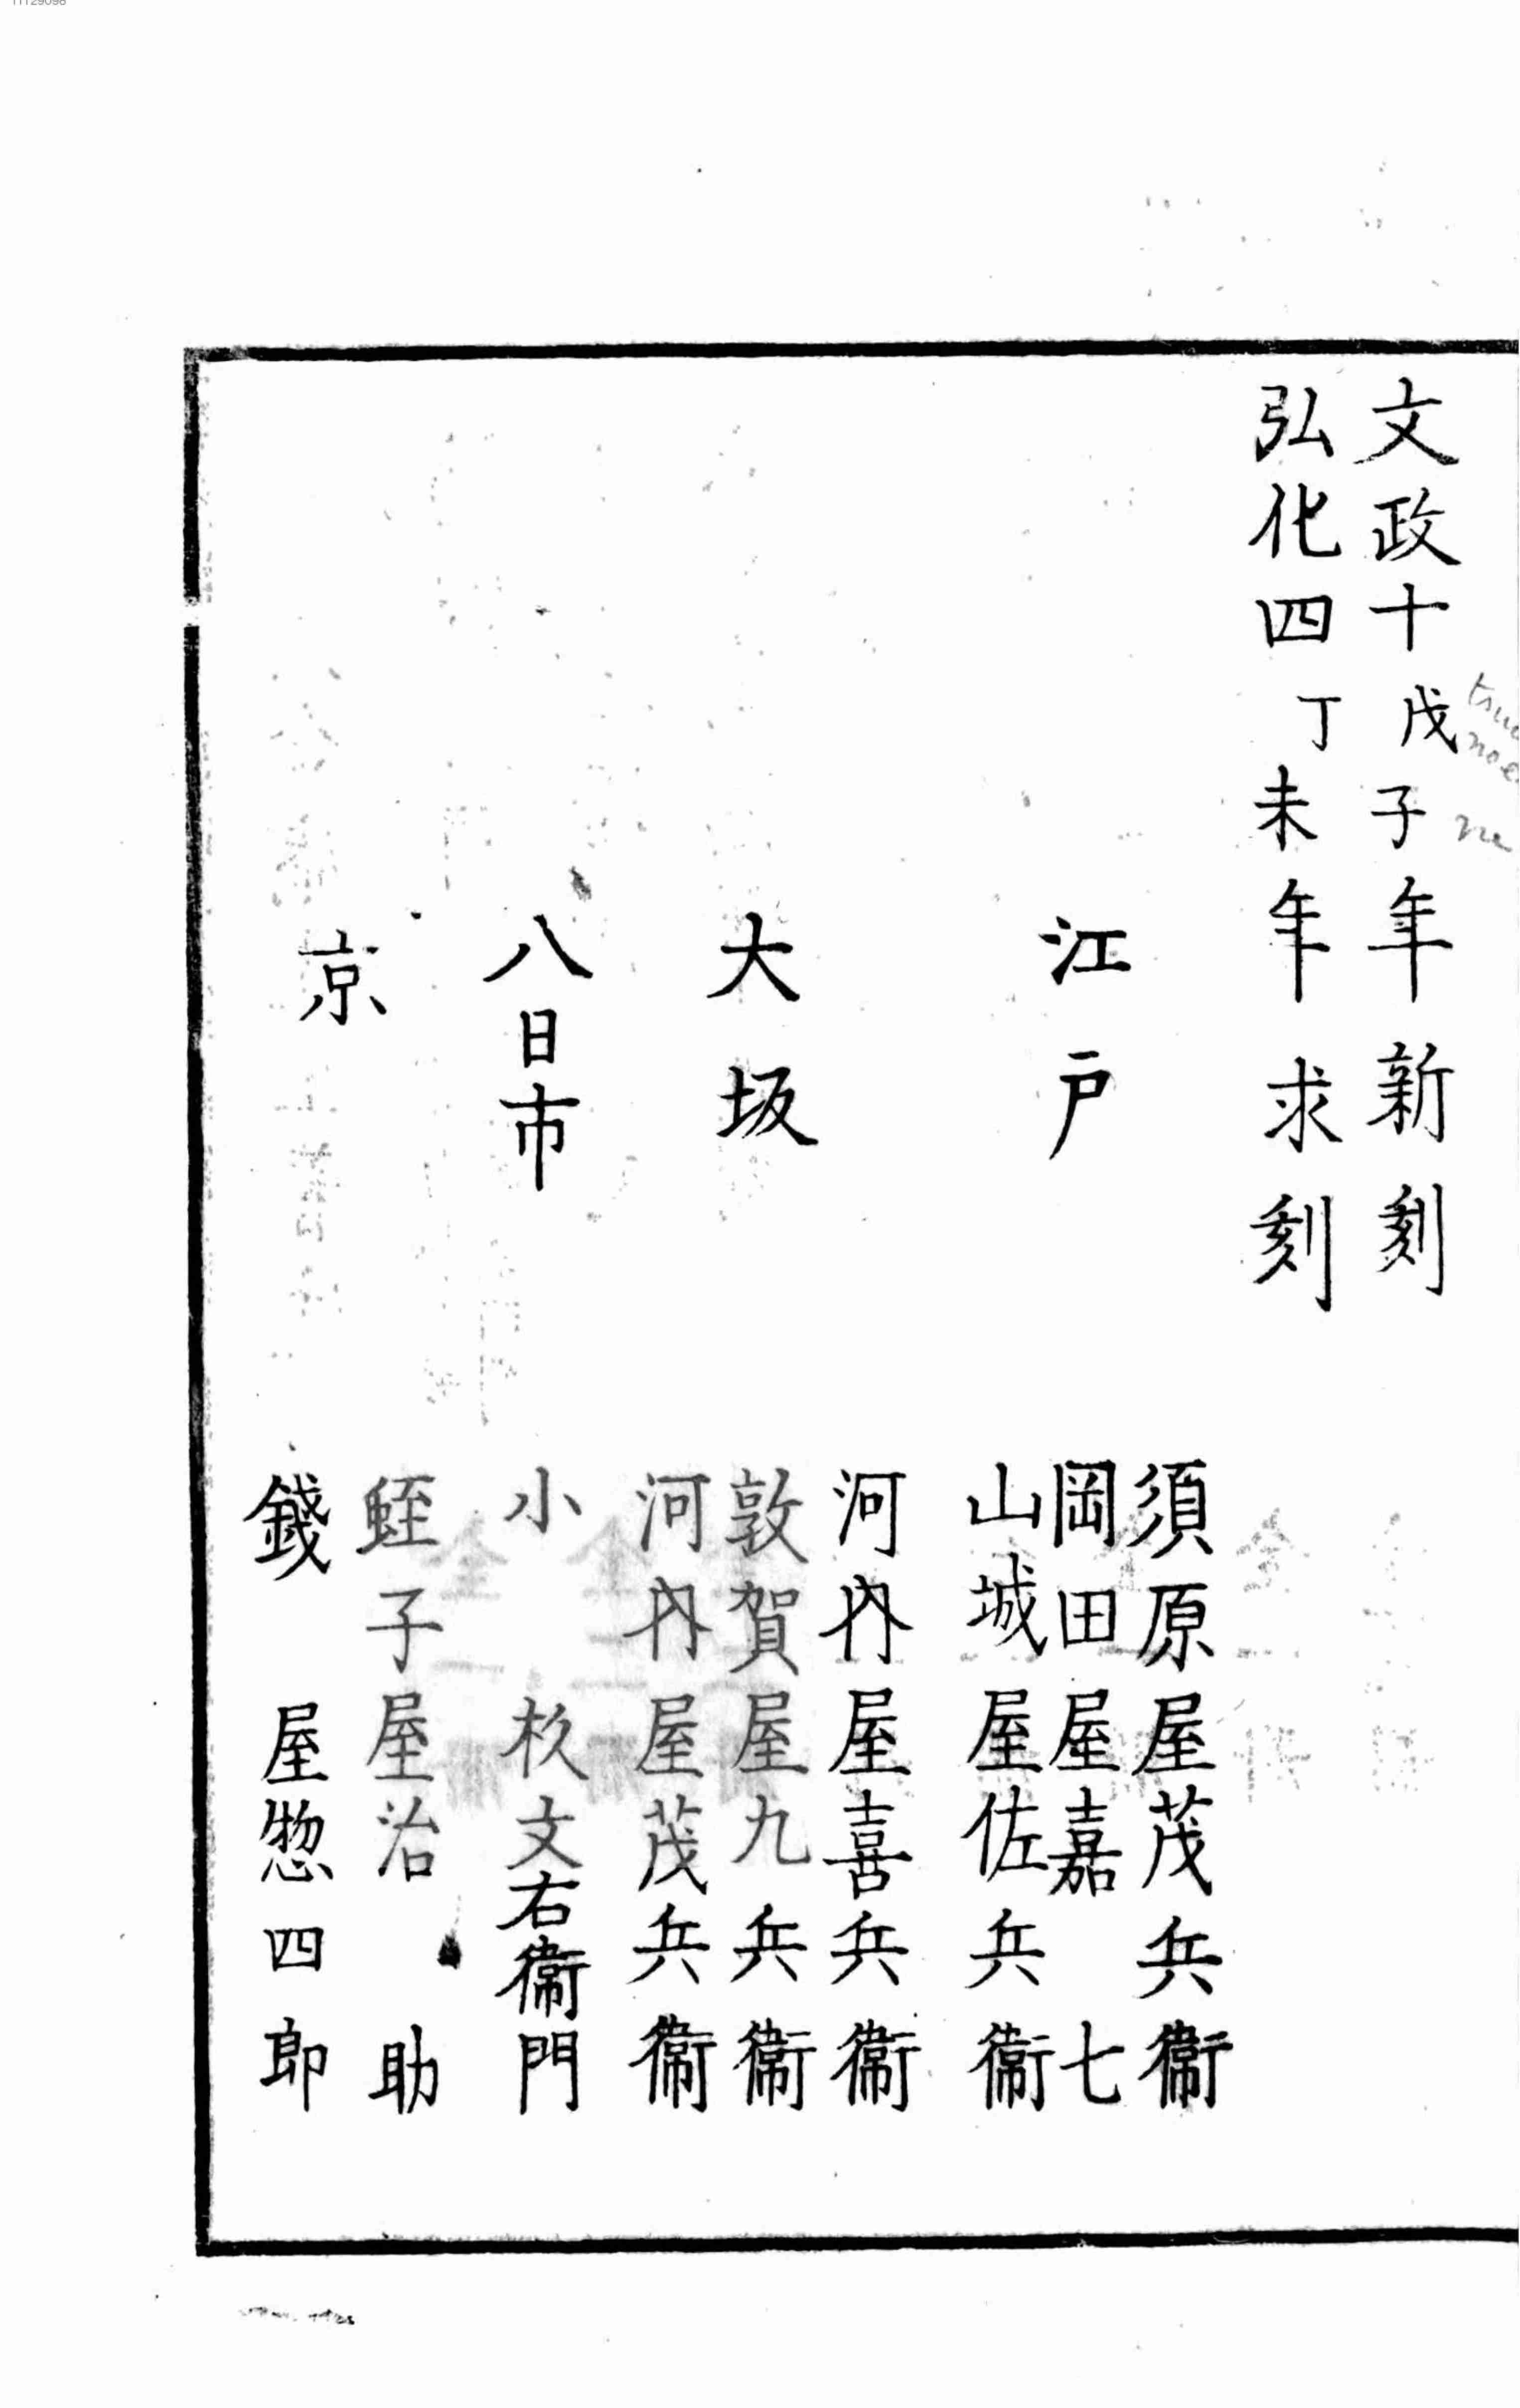 文政十戊子年新刻
弘化四丁未年求刻
江戸
須原屋茂兵衞
岡田屋嘉七
山城屋佐兵衞
大坂
河内屋喜兵衞
敦賀屋九兵衞
河内屋茂兵衞
八日市
小杦文右衞門
京
蛭子屋治助
錢屋惣四郎
ne